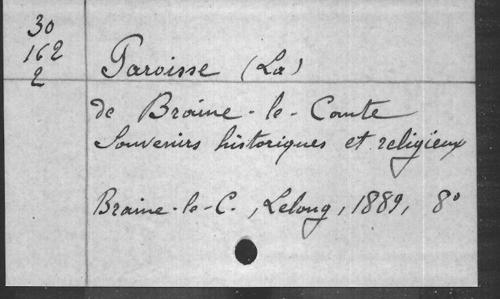 30
162
2
Paroisse (La)
de Braine-le-Comte
Souvenirs historiques et religieux
Braine-le-C., Lelong, 1889, 8°